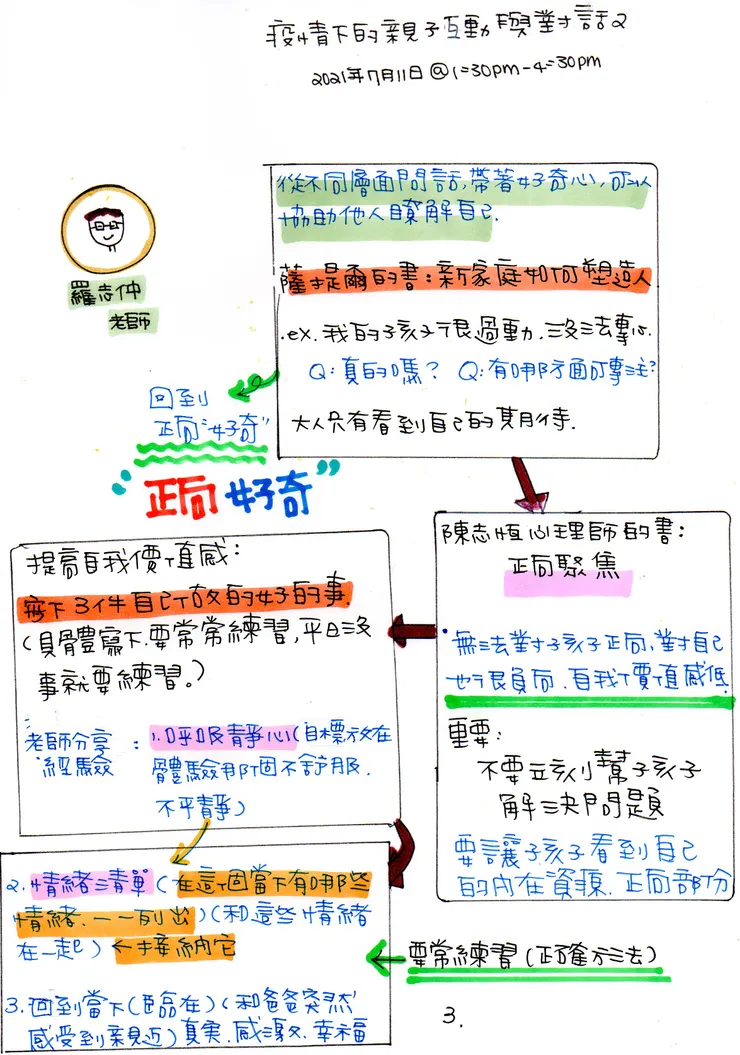 疫情下的親子互動與對話2
2021年7月11日@1=30pm-4=30pm
羅志仲
老師
從不同層面問話,帶著好奇心,可以
協助他人瞭解自己.
薩提爾的書:新家庭如何塑造人
.ex.我的孩子很過動.沒法專心.
Q:真的嗎? Q:有哪方面可專注?
大人只有看到自己的期待.
回到
正向"好奇"
"正向好奇"
陳志恆心理師的書:
正向聚焦
·無法對孩子正向,對自己
也很負向.自我價值感低.
重要:
不要立刻幫孩子
解決問題
要讓孩子看到自己
的內在資源.正向部份
提高自我價值感:
寫下3件自己做的好的事.
(具體寫下.要常常練習,平日沒
事就要練習。)
老師分享
經驗
:1.呼吸靜心(目標放在
體驗那個不舒服.
不平靜)
2.情緒清單(在這個當下有哪些
情緒.一一列出)(和這些情緒
在一起)←接納它
3.回到當下(臨在)(和爸爸突然
感受到親近)真実.感激.幸福
要常練習(正確方法)
3.